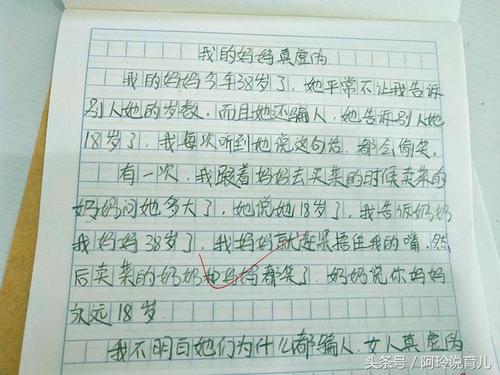 我的妈妈真虚伪
我的妈妈今年38岁了，她平常不让我告诉
别人她的岁数，而且她还骗人，她告诉别人她
18岁了，我每次听到她说这句话，都会偷笑。
有一次，我跟着妈妈去买菜的时候卖菜的
奶奶问她多大了，她说她18岁了，我告诉奶奶
我妈妈38岁了，我妈妈就连累捂住我的嘴，然
后卖菜的奶奶她妈妈都笑了，奶奶说你妈妈
永远18岁.
我不明白她们为什么都骗人，女人真虚伪
头条号／阿玲说育儿